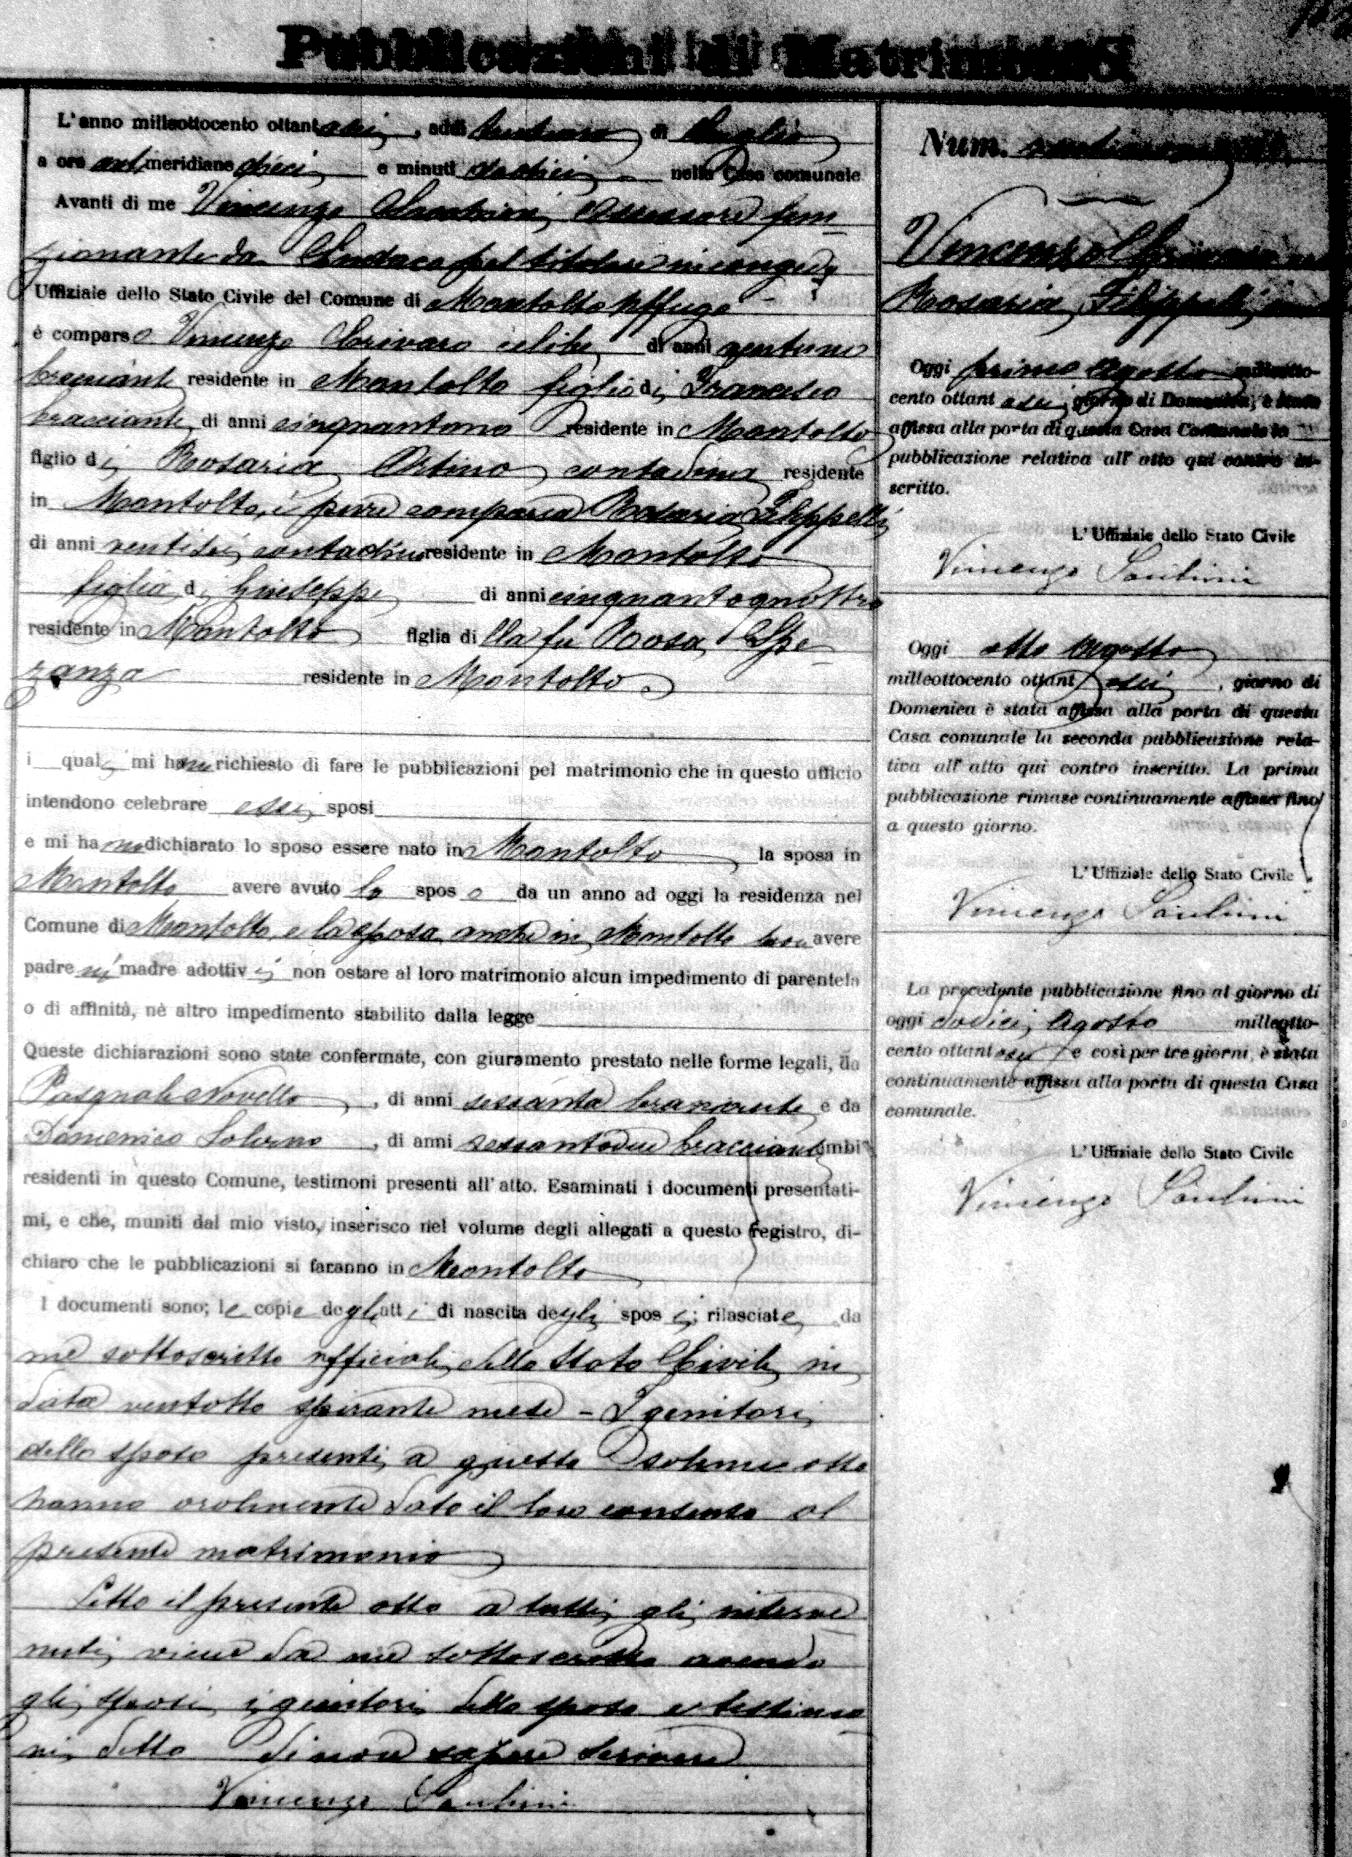 Pubblicazioni di Matrimonio
L'anno milleottocento ottantasei, addì trentuno di Luglio
a ore antimeridiane dieci e minuti dodici nella Casa comunale
Avanti di me Vincenzo Assessore fun-
zionante da Sindaco pel titolare in congedo
Uffiziale dello Stato Civile del Comune di Montalto Uffugo
é comparso Vincenzo Chrivaro celibe di anni ventuno
bracciante residente in Montalto figlio di Francesco
bracciante di anni cinquantuno residente in Montalto
figlio di Rosaria Ortino contadina residente
in Montalto, è pure comparsa Rosaria Filippelli
di anni ventisei contadina residente in Montalto
figlia di Giuseppe di anni cinquantaquattro
residente in Montalto figlia di lla fu Rosa Spe-
ranza residente in Montalto
i quali mi hanno richiesto di fare le pubblicazioni pel matrimonio che in questo ufficio
intendono celebrare essi sposi
e mi hanno dichiarato lo sposo essere nato in Montalto la sposa in
Montalto avere avuto lo sposo da un anno ad oggi la residenza nel
Comune di Montalto e la sposa anche in Montalto avere
padre nè madre adottivi non ostare al loro matrimonio alcun impedimento di parentela
o di affinità, nè altro impedimento stabilito dalla legge
Queste dichiarazioni sono state confermate, con giuramento prestato nelle forme legali, da
Pasquale Novello, di anni sessanta bracciante, e da
Domenico Salerno, di anni sessantadue bracciante ambi
residenti in questo Comune, testimoni presenti all'atto. Esaminati i documenti presentati-
mi, e che, muniti dal mio visto, inserisco nel volume degli allegati a questo registro, di-
chiaro che le pubblicazioni si faranno in Montalto
I documenti sono; le copie degli atti di nascita degli sposi; rilasciate da
me sottoscritto ufficiale dello Stato Civile in
data ventotto spirante mese - I genitori
dello sposo presenti a questo solenne atto
hanno oralmente dato il loro consenso al
presente matrimonio
Letto il presente atto a tutti gli interve-
nuti viene da me sottoscritto avendo
gli sposi i genitori dello sposo e testimo-
ni detto di non sapere scrivere
Vincenzo Santini
Num.
Vincenzo
Rosaria Filippelli
Oggi primo Agosto milleotto-
cento ottantasei, giorno di Domenica, è stata
affissa alla porta di questa Casa Comunale la
pubblicazione relativa all'atto qui contro in-
scritto.
L'Uffiziale dello Stato Civile
Vincenzo Santini
Oggi otto Agosto
milleottocento ottantasei, giorno di
Domenica è stata affissa alla porta di questa
Casa comunale la seconda pubblicazione rela-
tiva all'atto qui contro inscritto. La prima
pubblicazione rimase continuamente affissa fino
a questo giorno.
L'Uffiziale dello Stato Civile
Vincenzo Santini
La precedente pubblicazione fino al giorno di
oggi dodici Agosto milleotto-
cento ottantasei e così per tre giorni, è stata
continuamente affissa alla porta di questa Casa
comunale.
L'Uffiziale dello Stato Civile
Vincenzo Santini